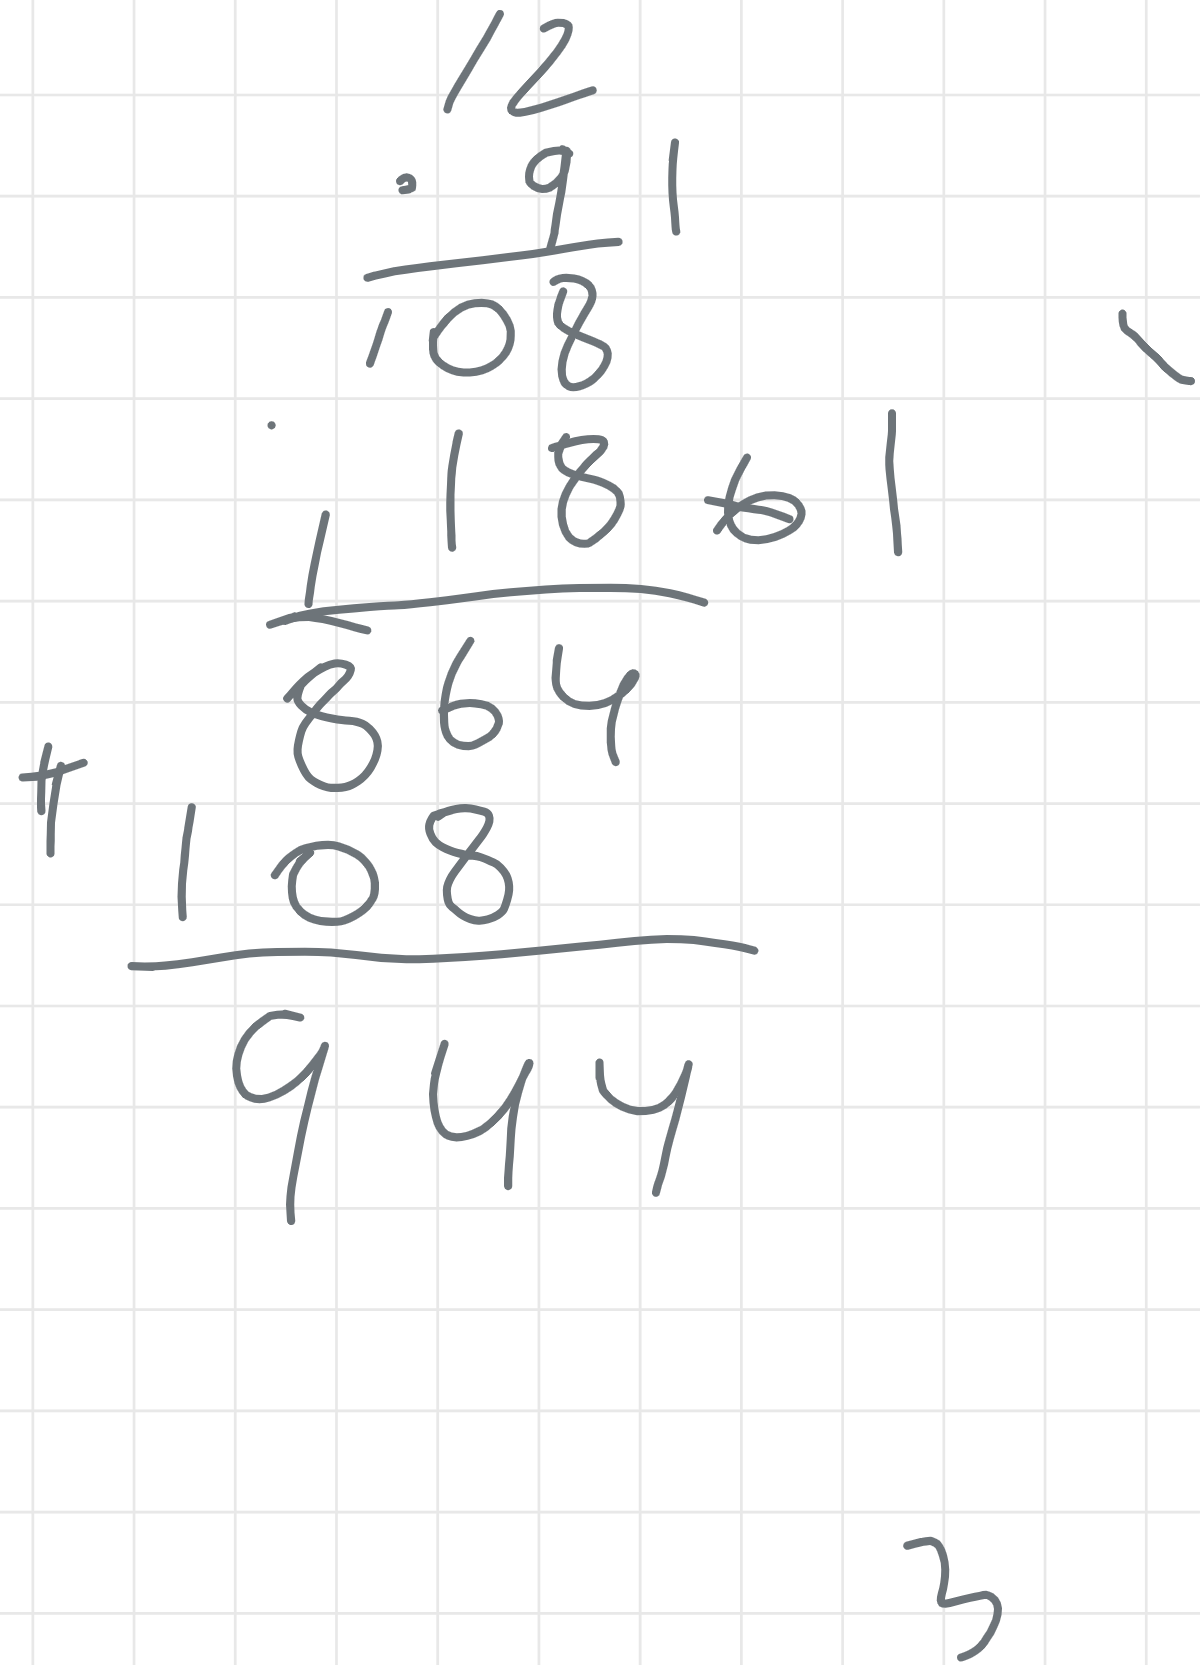 12
· 9 1
108
· 18 6 1
1
864
+
108
944
3